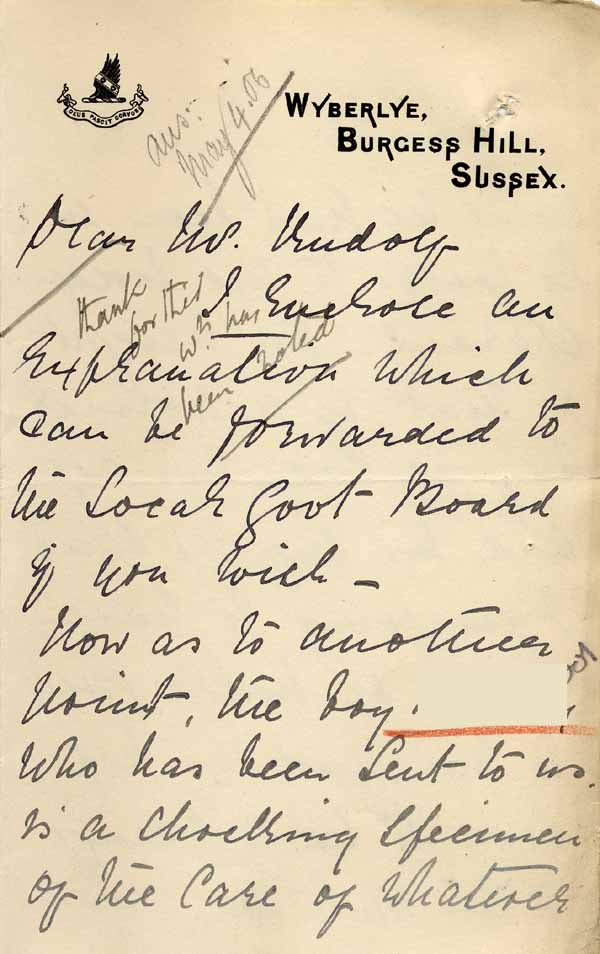 DEUS PASCIT CORVOS
WYBERLYE,
BURGESS HILL,
SUSSEX.
ans:
May 4.06
Dear Mr. Rudolf
thank
for this
wh. has
been noted
I Enclose an
Explanation which
can be forwarded to
the Local Govt Board
if you wish –
Now as to another
point, the boy.
who has been sent to us.
is a shocking specimen
of the care of whatever